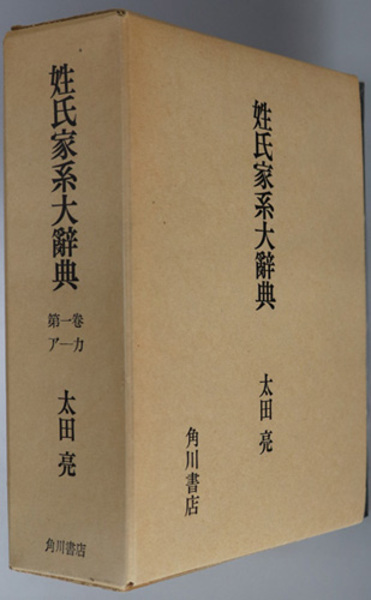 姓氏家系大辭典
太田亮
角川書店
姓氏家系大辭典
第一巻
ア―カ
太田亮
角川書店